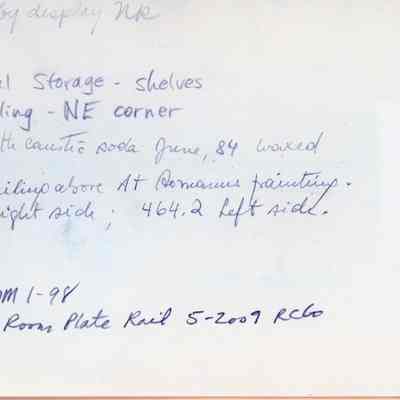 by display NR
Storage - shelves
ling - NE corner
th caustic soda June, 84 waxed
iling above At Romanus painting.
ight side; 464.2 left side.
OM 1-98
Room Plate Rail 5-2009 RCGO